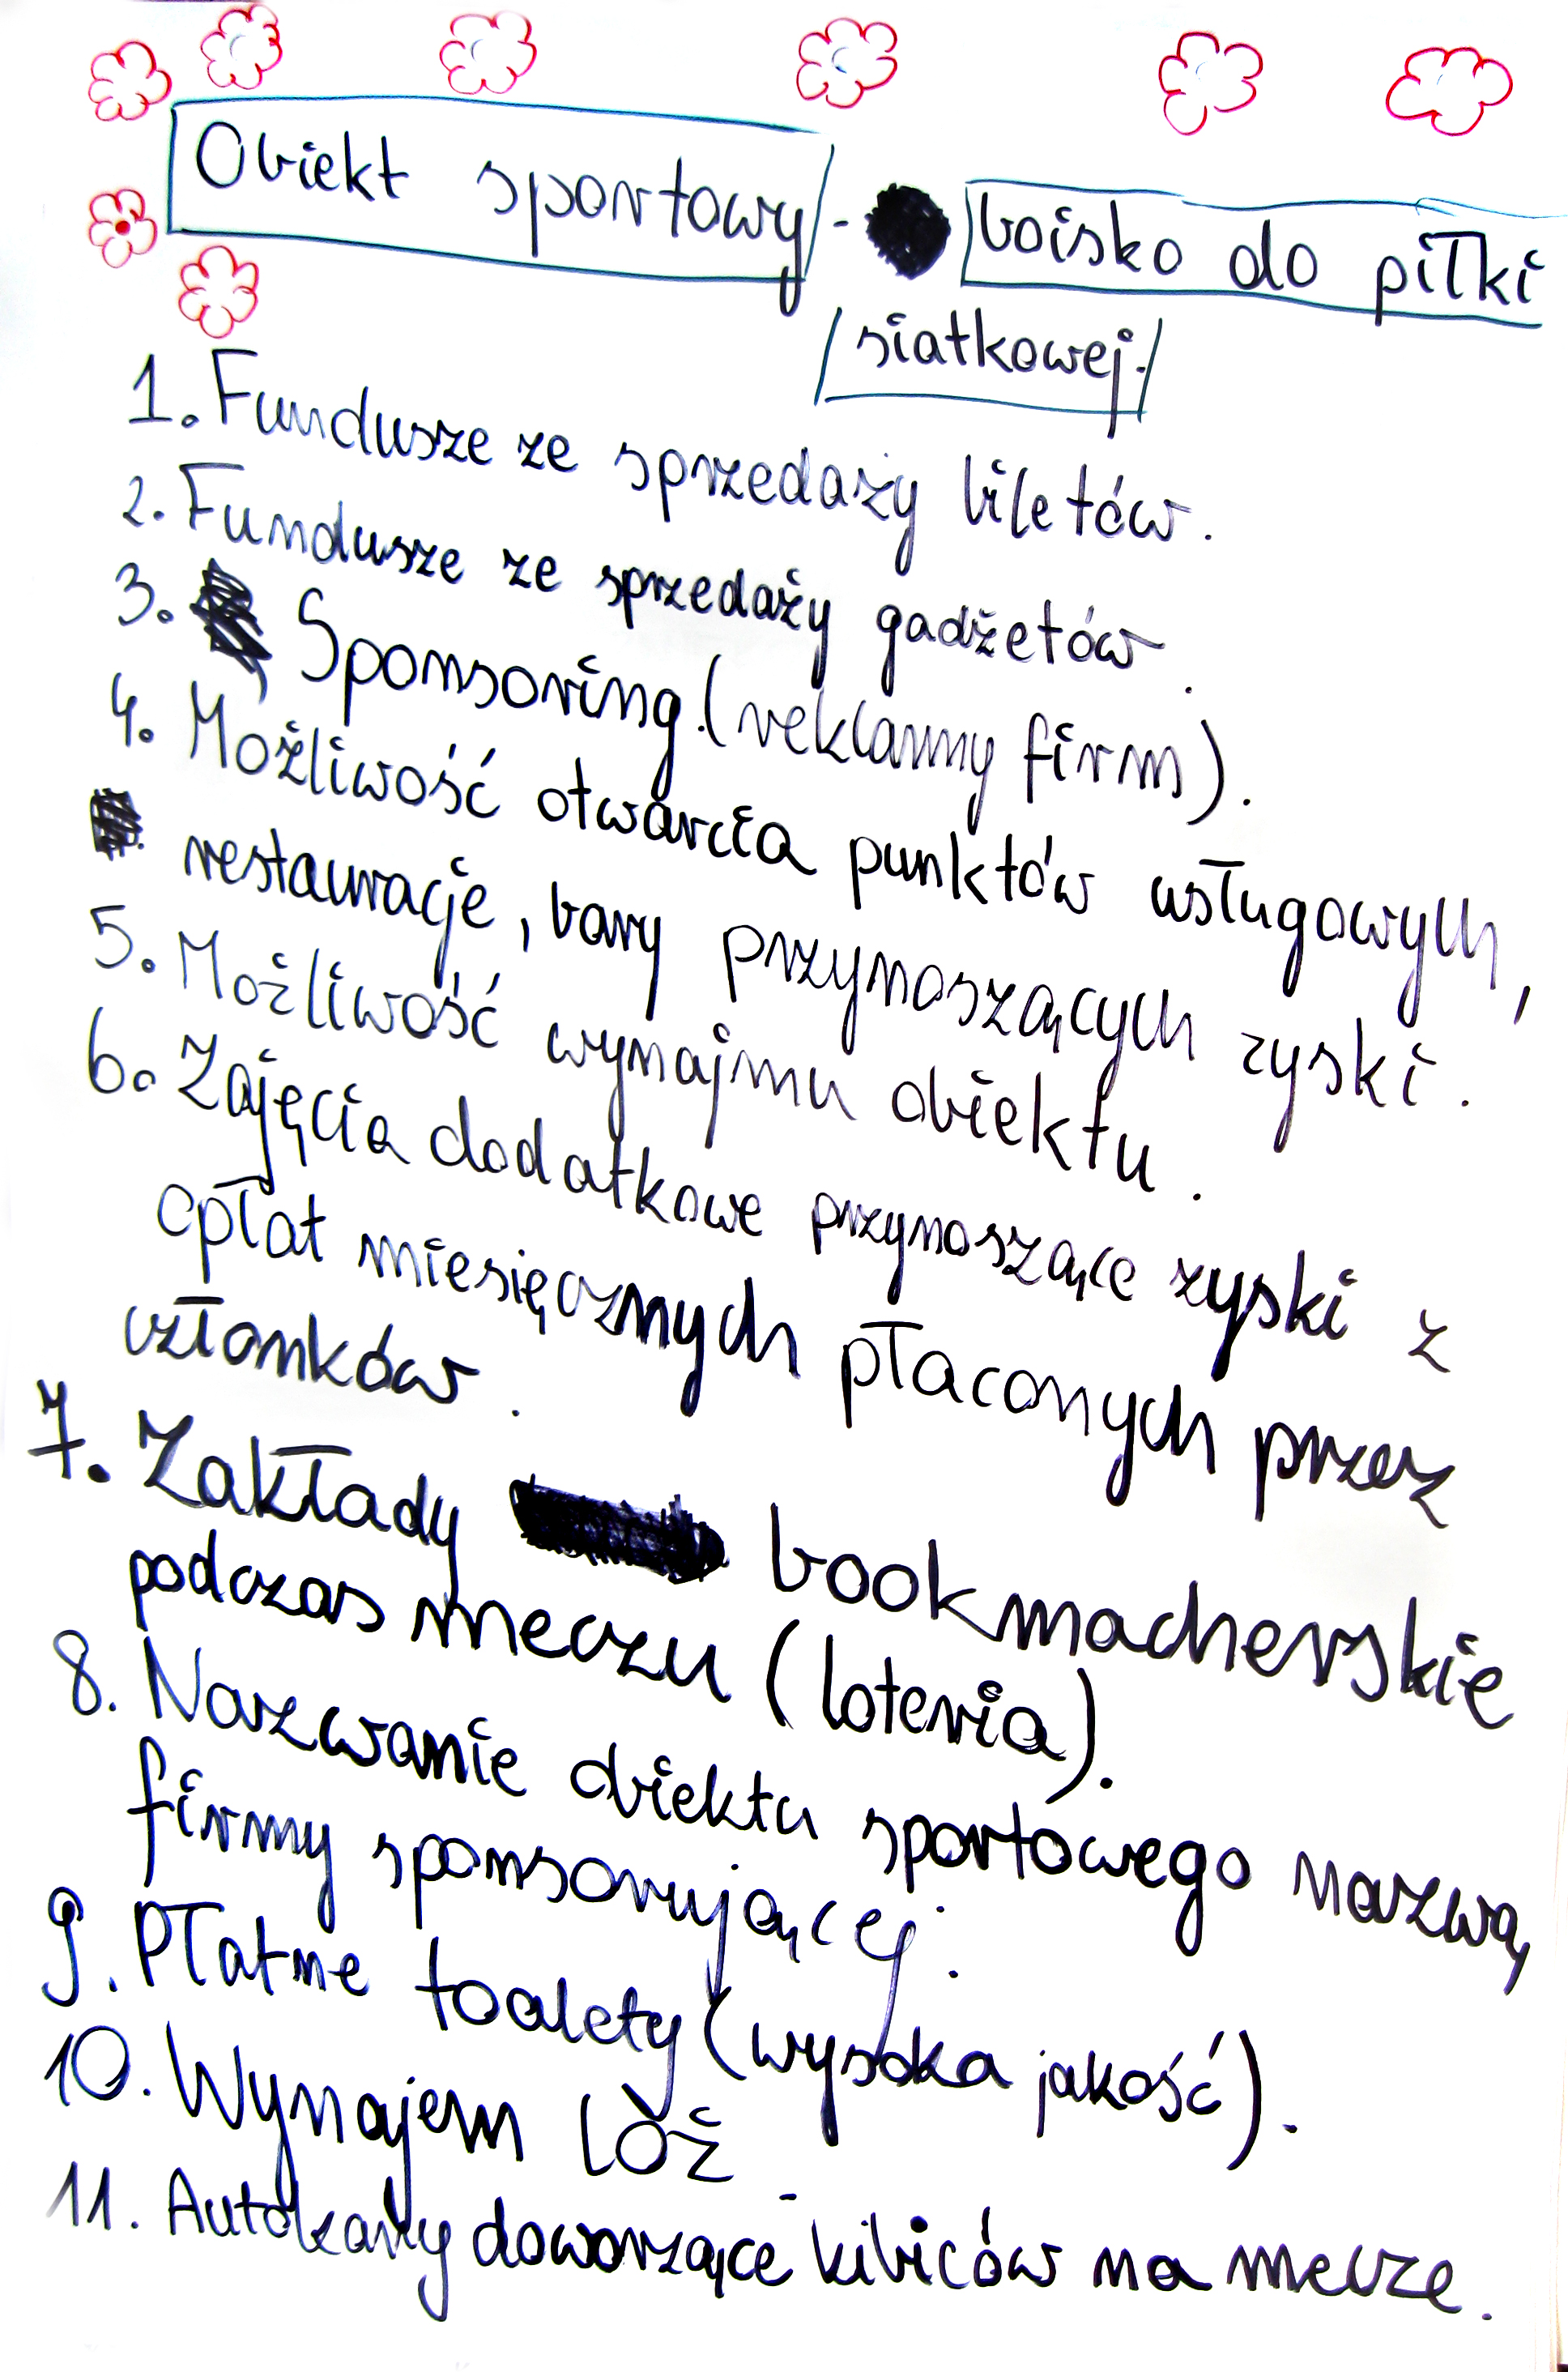 Obiekt sportowy - boisko do piłki
siatkowej.
1. Fundusze ze sprzedaży biletów.
2. Fundusze ze sprzedaży gadżetów.
3. Sponsoring (reklamy firm).
4. Możliwość otwarcia punktów usługowych,
restauracje, bary przynoszących zyski.
5. Możliwość wynajmu obiektu.
6. Zajęcia dodatkowe przynoszące zyski z
opłat miesięcznych płaconych przez
członków.
7. Zakłady bookmacherskie
podczas meczu (loteria).
8. Nazwanie obiektu sportowego nazwą
firmy sponsorującej.
9. Płatne toalety (wysoka jakość).
10. Wynajem lóż.
11. Autokary dowożące kibiców na mecze.